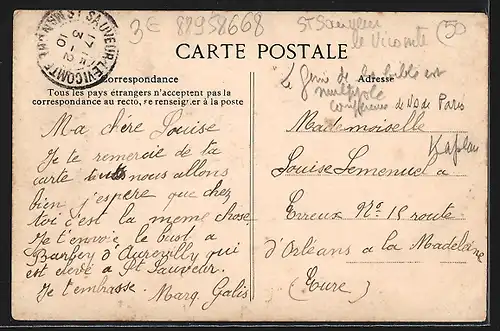 3€ 88958668
St Sauveur le Vicomte
50
ST SAUVEUR-LE-VICOMTE
17
CARTE POSTALE
Correspondance
Tous les pays étrangers n'acceptent pas la
correspondance au recto, se renseigner à la poste
Adresse
Le génie de
est
multiple
conférence de de Paris
Kaplan
Ma chère Louise
Je te remercie de ta
carte nous allons
bien j'espère que chez
toi c'est la meme chose.
Je t'envoie le bust a
Barbey d'Aurevilly qui
est elevé a St Sauveur.
Je t'embrasse.
Marg. Galis
Mademoiselle
Louise Lemenuel a
Evreux No 15 route
d'Orléans a la Madelaine
(Eure)